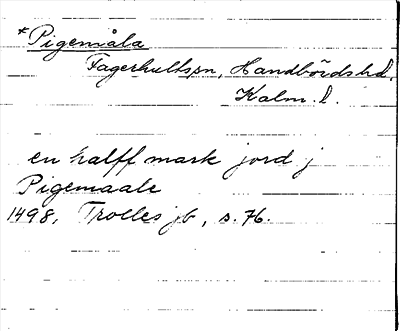 *Pigemåla
Fagerhultspn, Handbördshd,
Kalm. l.
en halff mark jord j
Pigemaale
1498, Trolles jb, s. 76.